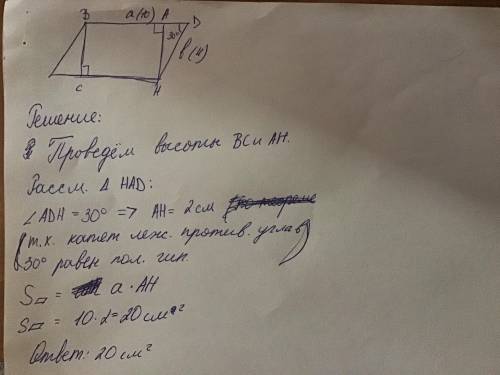 B a(10) A D
30° b(4)
C H
Решение:
Проведём высоты BC и AH.
Рассм. Δ HAD:
∠ADH = 30° => AH = 2 см
(т.к. катет леж. против. угла в
30° равен пол. гип.)
S▱ = a · AH
S▱ = 10 · 2 = 20 см²
Ответ: 20 см²